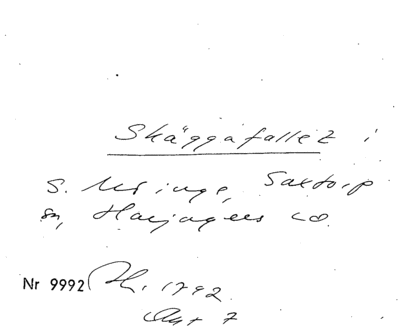 Skäggafallet i
S. Möinge, Saxtorp
sn, Harjagers co.
Nr 9992 Th. 1792.
Akt 7